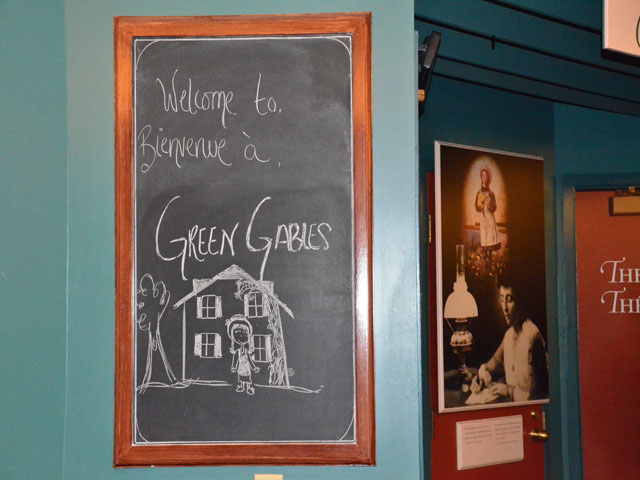 Welcome to.
Bienvenue à.
GREEN GABLES
THE
THÉ